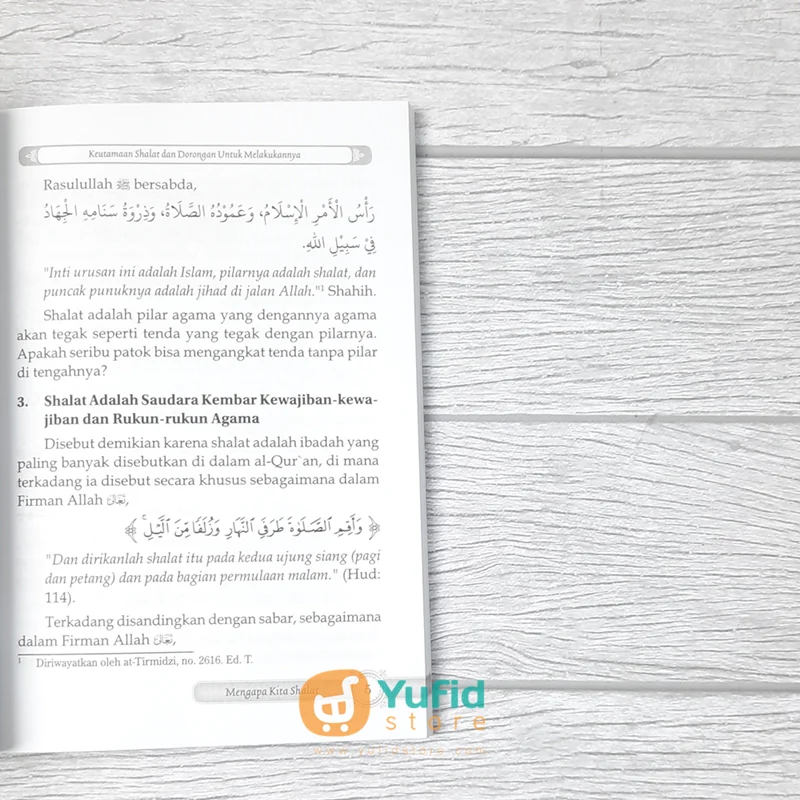 Keutamaan Shalat dan Dorongan Untuk Melakukannya
Rasulullah ﷺ bersabda,
رَأْسُ الْأَمْرِ الْإِسْلَامُ، وَعَمُوْدُهُ الصَّلَاةُ، وَذِرْوَةُ سَنَامِهِ الْجِهَادُ
فِيْ سَبِيْلِ اللهِ.
"Inti urusan ini adalah Islam, pilarnya adalah shalat, dan
puncak punuknya adalah jihad di jalan Allah."¹ Shahih.
Shalat adalah pilar agama yang dengannya agama
akan tegak seperti tenda yang tegak dengan pilarnya.
Apakah seribu patok bisa mengangkat tenda tanpa pilar
di tengahnya?
3. Shalat Adalah Saudara Kembar Kewajiban-kewa-
jiban dan Rukun-rukun Agama
Disebut demikian karena shalat adalah ibadah yang
paling banyak disebutkan di dalam al-Qur`an, di mana
terkadang ia disebut secara khusus sebagaimana dalam
Firman Allah تعالى,
﴿ وَأَقِمِ ٱلصَّلَوٰةَ طَرَفَىِ ٱلنَّهَارِ وَزُلَفًا مِّنَ ٱلَّيْلِ ۚ ﴾
"Dan dirikanlah shalat itu pada kedua ujung siang (pagi
dan petang) dan pada bagian permulaan malam." (Hud:
114).
Terkadang disandingkan dengan sabar, sebagaimana
dalam Firman Allah تعالى,
¹ Diriwayatkan oleh at-Tirmidzi, no. 2616. Ed. T.
Mengapa Kita Shalat 5
Yufid
store
www.yufidstore.com